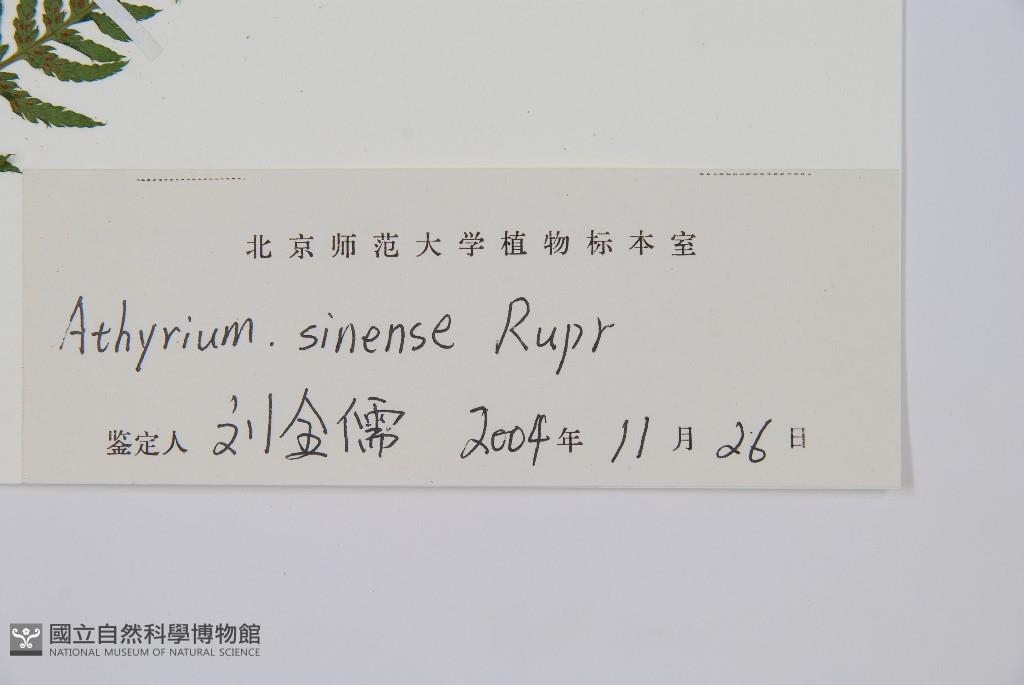 北京师范大学植物标本室
Athyrium. sinense Rupr
鉴定人 刘全儒 2004年 11月 26日
國立自然科學博物館
NATIONAL MUSEUM OF NATURAL SCIENCE